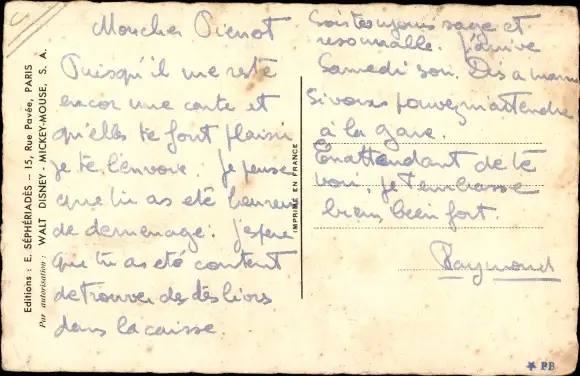 Mon cher Pierrot
Puisqu'il me reste
encor une carte et
qu'elles te font plaisir
je te l'envoie. je pense
que tu as été heureux
de demenage. j'espère
que tu as été content
de trouver des des livres
dans la caisse.
toujours sage et
resonnable. j'arrive
Samedi soir. Dis a maman
Si vous pouvez m'attendre
à la gare.
En attendant de te
voir, je t'embrasse
biens bien fort.
Raymond
Editions : E. SÉPHÉRIADÈS — 15, Rue Pavée, PARIS
Par autorisation : WALT DISNEY - MICKEY-MOUSE, S. A.
IMPRIMÉ EN FRANCE
PB